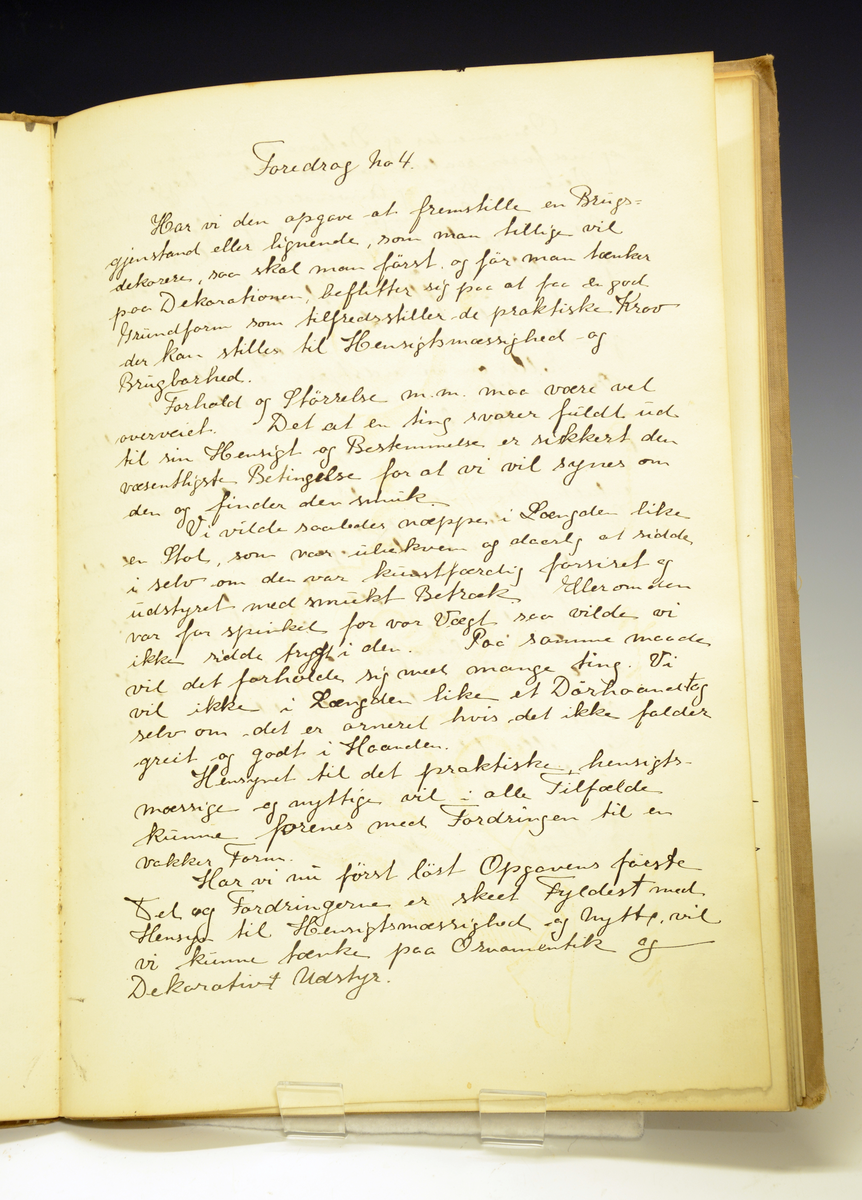 Foredrag No 4.
Har vi den opgave at fremstille en Brugs=
gjenstand eller lignende, som man tillige vil
dekorere, saa skal man först og för man tænker
paa Dekorationen, beflitter sig paa at faa en god
Grundform som tilfredsstiller de praktiske Krav
der kan stilles til Hensigtsmæssighed og
Brugbarhed.
Forhold og Störrelse m.m. maa være vel
overveiet. Det at en ting svarer fuldt ud
til sin Hensigt og Bestemmelse er sikkert den
væsentligste Betingelse for at vi vil synes om
den og finder den smuk.
Vi vilde saaledes næppe i Længden like
en Stol, som var ubekvem og daarlig at sidde
i selv om den var kunstfærdig forsiret og
udstyret med smukt Betræk Eller om den
var for spinkel for vor Vægt saa vilde vi
ikke sidde trygt i den. Paa samme maade
vil det forholde sig med mange ting. Vi
vil ikke i Længden like et Dörhaandtag
selv om det er orneret hvis det ikke falder
greit og godt i Haanden.
Hensynet til det praktiske, hensigts-
mæssige og nyttige vil i alle Tilfælde
kunne forenes med Fordringen til en
vakker Form.
Har vi nu först löst Opgavens föeste
Del og Fordringerne er skeet Fyldest med
Hensyn til Hensigtsmæssighed og Nytte, vil
vi kunne tænke paa Ornamentik og
Dekorativt Udstyr.